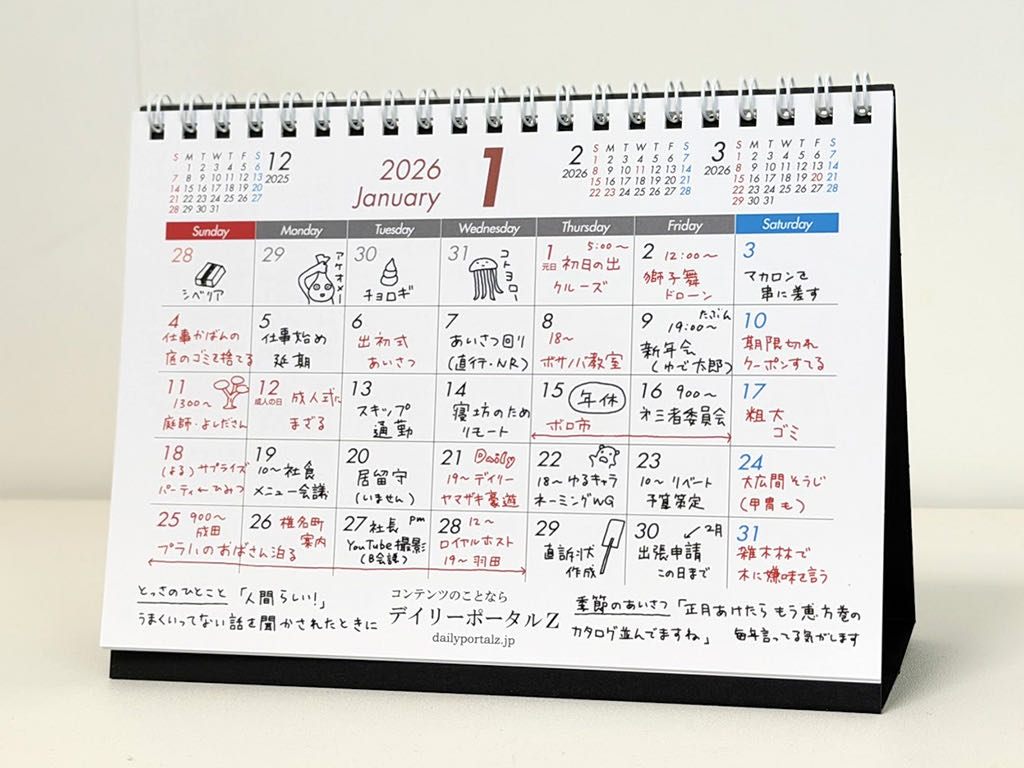 12
2025
S M T W T F S
1 2 3 4 5 6
7 8 9 10 11 12 13
14 15 16 17 18 19 20
21 22 23 24 25 26 27
28 29 30 31
2026
January
1
2
2026
S M T W T F S
1 2 3 4 5 6 7
8 9 10 11 12 13 14
15 16 17 18 19 20 21
22 23 24 25 26 27 28
3
2026
S M T W T F S
1 2 3 4 5 6 7
8 9 10 11 12 13 14
15 16 17 18 19 20 21
22 23 24 25 26 27 28
29 30 31
Sunday Monday Tuesday Wednesday Thursday Friday Saturday
28
シベリア
29
アケオメー
30
チョロギ
31
コトヨロー
1
元日
5:00〜
初日の出
クルーズ
2
12:00〜
獅子舞
ドローン
3
マカロンを
串に差す
4
仕事かばんの
底のゴミを捨てる
5
仕事始め
延期
6
出初式
あいさつ
7
あいさつ回り
(直行・NR)
8
18〜
ボサノバ教室
9
たぶん
19:00〜
新年会
(ゆで太郎)
10
期限切れ
クーポンすてる
11
1300〜
庭師・よしださん
12
成人の日
成人式に
まざる
13
スキップ
通勤
14
寝坊のため
リモート
15
年休
ボロ市
16
900〜
第三者委員会
17
粗大
ゴミ
18
(よる)サプライズ
パーティ←ひみつ
19
10〜社食
メニュー会議
20
居留守
(いません)
21
Daily
19〜デイリー
ヤマザキ豪遊
22
18〜ゆるキャラ
ネーミングWG
23
10〜リベート
予算策定
24
大広間そうじ
(甲冑も)
25
900〜
成田
プラハのおばさん泊る
26
椎名町
案内
27
社長 pm
YouTube撮影
(B会議)
28
12〜
ロイヤルホスト
19〜羽田
29
直訴状
作成
30
2月
出張申請
この日まで
31
雑木林で
木に嫌味を言う
とっさのひとこと「人間らしい!」
うまくいってない話を聞かされたときに
コンテンツのことなら
デイリーポータルZ
dailyportalz.jp
季節のあいさつ「正月あけたらもう恵方巻の
カタログ並んでますね」 毎年言ってる気がします